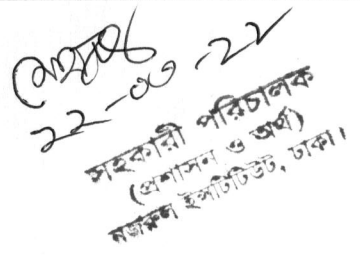 ২২-০৩-২২
সহকারী পরিচালক
(প্রশাসন ও অর্থ)
নজরুল ইন্সটিটিউট, ঢাকা।